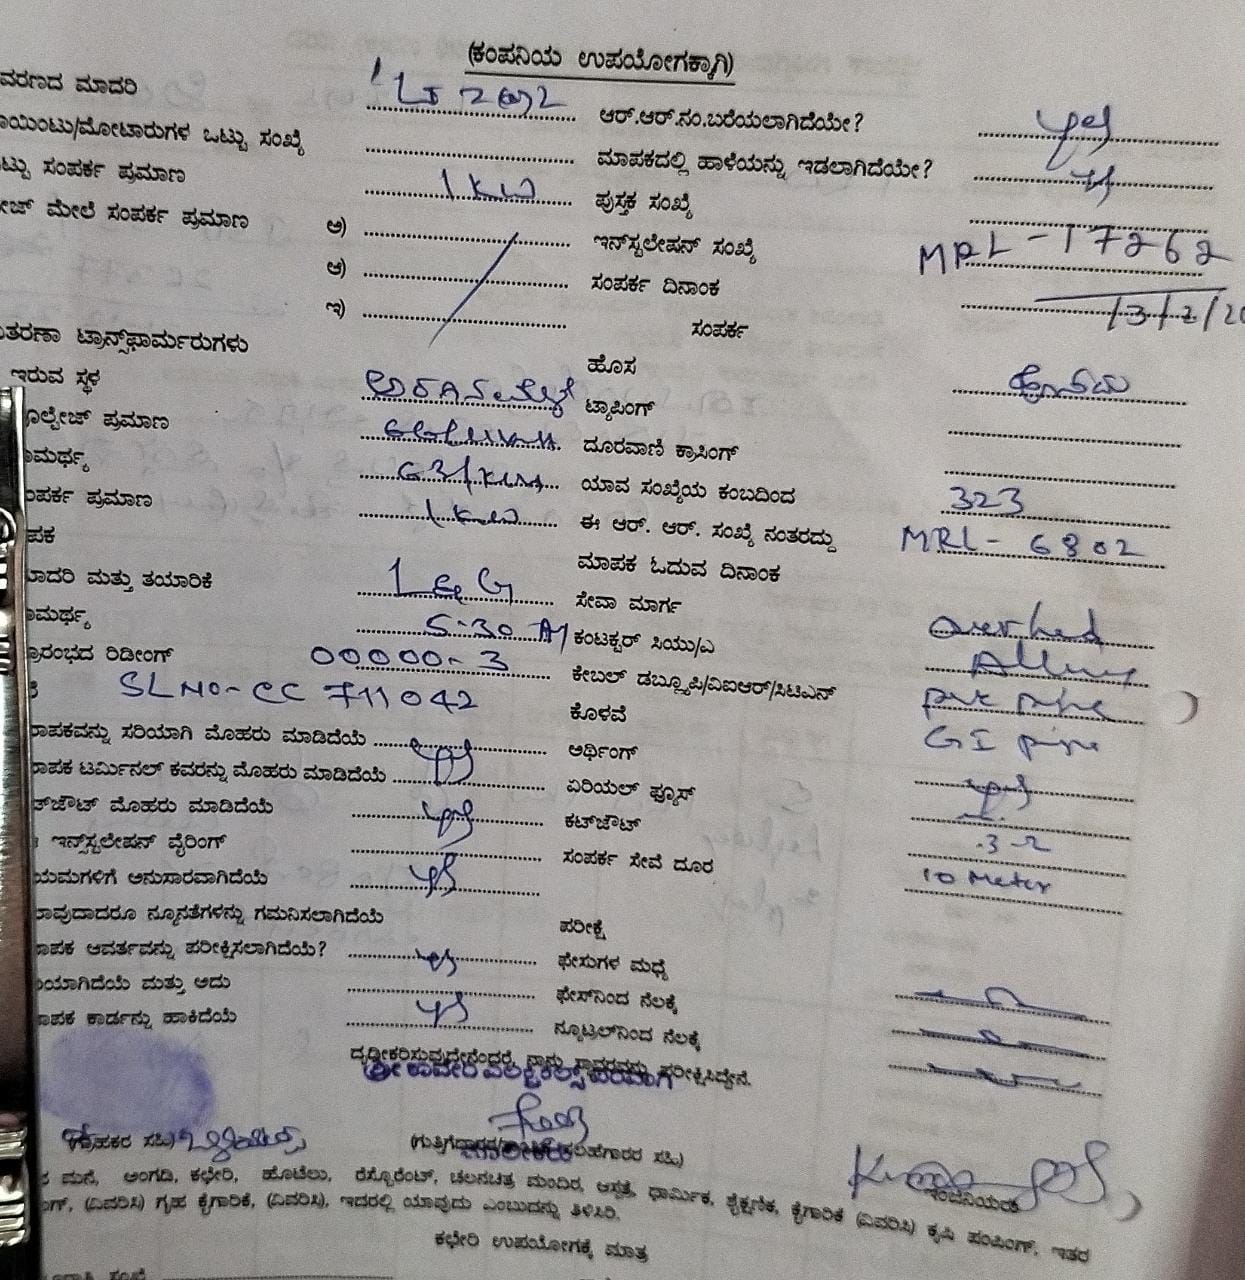 (ಕಂಪನಿಯ ಉಪಯೋಗಕ್ಕಾಗಿ)
ವರಣದ ಮಾದರಿ LT 2 ಆರ್.ಆರ್.ನಂ.ಬರೆಯಲಾಗಿದೆಯೇ? yes
ಾಯಿಂಟು/ಮೋಟಾರುಗಳ ಒಟ್ಟು ಸಂಖ್ಯೆ ಮಾಪಕದಲ್ಲಿ ಹಾಳೆಯನ್ನು ಇಡಲಾಗಿದೆಯೇ? ys
ಟ್ಟು ಸಂಪರ್ಕ ಪ್ರಮಾಣ 1 KW ಪುಸ್ತಕ ಸಂಖ್ಯೆ
ೇಜ್ ಮೇಲೆ ಸಂಪರ್ಕ ಪ್ರಮಾಣ ಅ) ಇನ್‌ಸ್ಟಲೇಷನ್ ಸಂಖ್ಯೆ MRL - 17262
ಆ) ಸಂಪರ್ಕ ದಿನಾಂಕ 13/2/20
ಇ) ಸಂಪರ್ಕ
ತರಣಾ ಟ್ರಾನ್ಸ್‌ಫಾರ್ಮರುಗಳು ಹೊಸ
ಇರುವ ಸ್ಥಳ ಟ್ಯಾಪಿಂಗ್
ೂಲ್ಟೇಜ್ ಪ್ರಮಾಣ ದೂರವಾಣಿ ಕ್ರಾಸಿಂಗ್
ಾಮರ್ಥ್ಯ ಯಾವ ಸಂಖ್ಯೆಯ ಕಂಬದಿಂದ 323
ಂಪರ್ಕ ಪ್ರಮಾಣ 1 KW ಈ ಆರ್. ಆರ್. ಸಂಖ್ಯೆ ನಂತರದ್ದು MRL - 6802
ಪಕ ಮಾಪಕ ಓದುವ ದಿನಾಂಕ
ಾದರಿ ಮತ್ತು ತಯಾರಿಕೆ L & G ಸೇವಾ ಮಾರ್ಗ overhed
ಾಮರ್ಥ್ಯ 5-30 A ಕಂಟಕ್ಟರ್ ಸಿಯು/ಎ
ಾರಂಭದ ರಿಡೀಂಗ್ 00000-3 ಕೇಬಲ್ ಡಬ್ಲ್ಯೂಪಿ/ವಿಐಆರ್/ಸಿಟಿಎನ್ pvc pipe
SLNO-CC 711042 ಕೊಳವೆ GI pipe
ಾಪಕವನ್ನು ಸರಿಯಾಗಿ ಮೊಹರು ಮಾಡಿದೆಯೆ ys ಅರ್ಥಿಂಗ್ ys
ಾಪಕ ಟರ್ಮಿನಲ್ ಕವರನ್ನು ಮೊಹರು ಮಾಡಿದೆಯೆ ಏರಿಯಲ್ ಫ್ಯೂಸ್
ಟ್‌ಔಟ್ ಮೊಹರು ಮಾಡಿದೆಯೆ ys ಕಟ್‌ಔಟ್
ಇನ್ಸ್‌ಸ್ಟಲೇಷನ್ ವೈರಿಂಗ್ ಸಂಪರ್ಕ ಸೇವೆ ದೂರ 10 Meter
ಯಮಗಳಿಗೆ ಅನುಸಾರವಾಗಿದೆಯೆ ys
ಾವುದಾದರೂ ನ್ಯೂನತೆಗಳನ್ನು ಗಮನಿಸಲಾಗಿದೆಯೆ ಪರೀಕ್ಷೆ
ಾಪಕ ಆವರ್ತವನ್ನು ಪರೀಕ್ಷಿಸಲಾಗಿದೆಯೆ? ys ಫೇಸುಗಳ ಮಧ್ಯೆ
ಿಯಾಗಿದೆಯೆ ಮತ್ತು ಅದು ಫೇಸ್‌ನಿಂದ ನೆಲಕ್ಕೆ
ಾಪಕ ಕಾರ್ಡನ್ನು ಹಾಕಿದೆಯೆ ys ನ್ಯೂಟ್ರಲ್‌ನಿಂದ ನೆಲಕ್ಕೆ
ದೃಢೀಕರಿಸುವುದೇನೆಂದರೆ, ನಾನು ಸ್ಥಾವರವನ್ನು ಪರೀಕ್ಷಿಸಿದ್ದೇನೆ.
ಶ್ರೀ ಕಾವೇರಿ ಎಲೆಕ್ಟ್ರಿಕಲ್ಸ್ ಪರವಾಗಿ
(ಗ್ರಾಹಕರ ಸಹಿ) ಮಾಲೀಕರು ಸಹಿ)
ಇಂಜಿನಿಯರ್
ಮನೆ, ಅಂಗಡಿ, ಕಛೇರಿ, ಹೊಟೆಲು, ರೆಸ್ಟೊರೆಂಟ್, ಚಲನಚಿತ್ರ ಮಂದಿರ, ಆಸ್ಪತ್ರೆ, ಧಾರ್ಮಿಕ, ಶೈಕ್ಷಣಿಕ, ಕೈಗಾರಿಕೆ (ವಿವರಿಸಿ) ಕೃಷಿ ಪಂಪಿಂಗ್, ಇತರ
ಗ್, (ವಿವರಿಸಿ) ಗೃಹ ಕೈಗಾರಿಕೆ, (ವಿವರಿಸಿ), ಇದರಲ್ಲಿ ಯಾವುದು ಎಂಬುದನ್ನು ತಿಳಿಸಿರಿ.
ಕಛೇರಿ ಉಪಯೋಗಕ್ಕೆ ಮಾತ್ರ